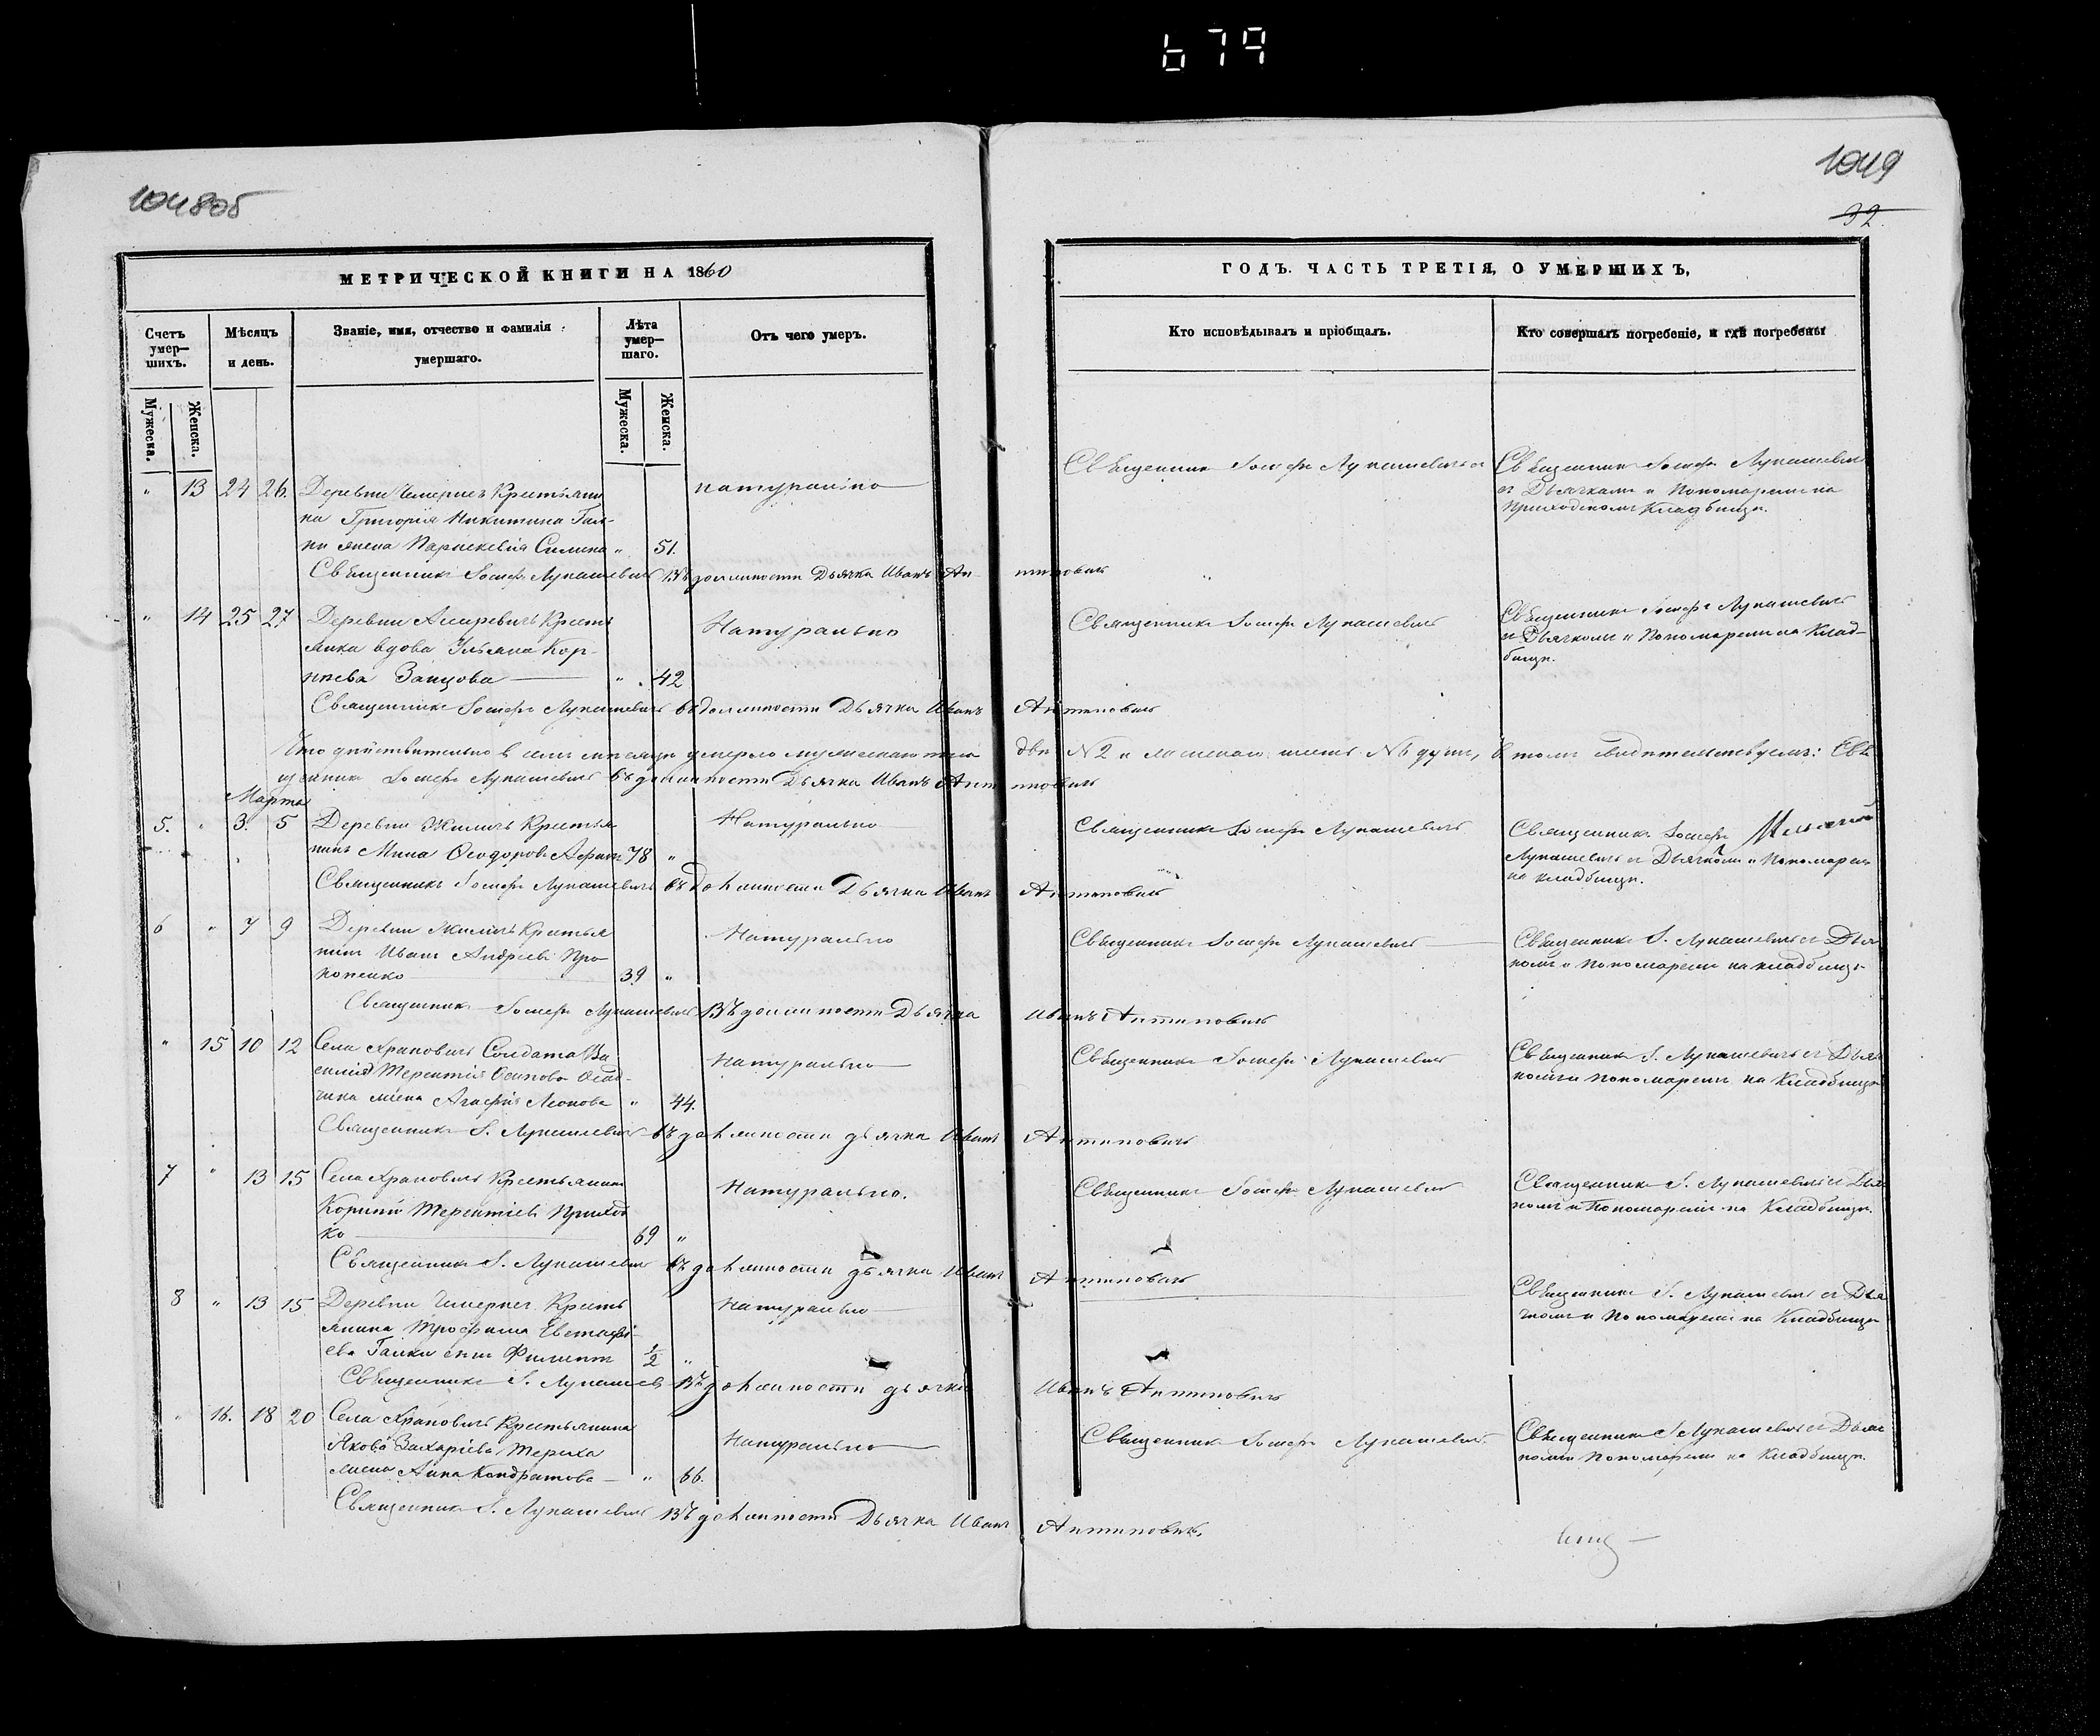 679
104805
1049
32.
МЕТРИЧЕСКОЙ КНИГИ НА 1860
ГОДЪ. ЧАСТЬ ТРЕТІЯ, О УМЕРШИХЪ,
Счетъ умер-шихъ.
Мѣсяцъ и день.
Званіе, имя, отчество и фамилія умершаго.
Лѣта умер-шаго.
Отъ чего умеръ.
Кто исповѣдывалъ и пріобщалъ.
Кто совершалъ погребеніе, и гдѣ погребены
Мужеска.
Женска.
Мужеска.
Женска.
" 13 24 26. Деревни Крестьяни
на Григорія Никитина Гал-
ки жена Параскевія " 51.
натурально
Священникъ Іосифъ Лукашевичъ
Священникъ Іосифъ Лукашевичъ
съ Дьячкомъ и Пономаремъ на
приходскомъ Кладбищѣ.
Священникъ Іосифъ Лукашевичъ Въ должности Дьячка Иванъ Антиповичъ
" 14 25 27 Деревни Кресть
янка вдова Ульяна Кор-
нѣева Зайцова " 42
Натурально
Священникъ Іосифъ Лукашевичъ
Священникъ Іосифъ Лукашевичъ
съ Дьячкомъ и Пономаремъ на Клад-
бищѣ.
Священникъ Іосифъ Лукашевичъ въ должности Дьячка Иванъ Антиповичъ
Что дѣйствительно в семъ мѣсяцѣ умерло мужескаго пола двѣ №2 и женскаго шесть №6 душъ, в томъ свидѣтельствуемъ: Свя
щенникъ Іосифъ Лукашевичъ въ должности Дьячка Иванъ Антиповичъ
Марта
5. " 3. 5 Деревни Жиличъ Крестья
нинъ Мина Ѳеодоровъ 78 "
Натурально
Священникъ Іосифъ Лукашевичъ
Священникъ Іосифъ
Лукашевичъ съ Дьячкомъ и Пономаремъ
на кладбищѣ.
Священникъ Іосифъ Лукашевичъ въ должности Дьячка Иванъ Антиповичъ
6 " 7 9 Деревни Жиличъ Крестья
нинъ Иванъ Андреевъ Про
копенко 39 "
Натурально
Священникъ Іосифъ Лукашевичъ
Священникъ І. Лукашевичъ съ Дьяч
комъ и Пономаремъ на кладбищѣ
Священникъ Іосифъ Лукашевичъ Въ должности Дьячка Иванъ Антиповичъ
" 15 10 12 Села Храповичъ Солдата
Терентія Осипова
жена Агафія Леонова " 44.
Натурально
Священникъ Іосифъ Лукашевичъ
Священникъ І. Лукашевичъ съ Дьяч
комъ и Пономаремъ на Кладбищѣ
Священникъ І. Лукашевичъ въ должности дьячка Иванъ Антиповичъ
7 " 13 15 Села Храповичъ Крестьянинъ
Корнѣй Терентіевъ Приход
ко 69 "
Натурально.
Священникъ Іосифъ Лукашевичъ
Священникъ І. Лукашевичъ съ Дьяч
комъ и Пономаремъ на Кладбищѣ.
Священникъ І. Лукашевичъ въ должности дьячка Иванъ Антиповичъ
8 " 13 15 Деревни Кресть
янина Трофима Евстафі-
ева Галки сынъ Филиппъ ½ "
Натурально
Священникъ І. Лукашевичъ съ Дья
чкомъ и Пономаремъ на Кладбищѣ
Священникъ І. Лукашев Въ должности дьячка Иванъ Антиповичъ
" 16. 18 20 Села Храповичъ Крестьянина
Якова Захаріева
жена Анна Кондратова " 66.
Натурально
Священникъ Іосифъ Лукашевичъ.
Священникъ І Лукашевичъ съ Дьяч
комъ и Пономаремъ на Кладбищѣ.
Священникъ І. Лукашевичъ Въ должности Дьячка Иванъ Антиповичъ.